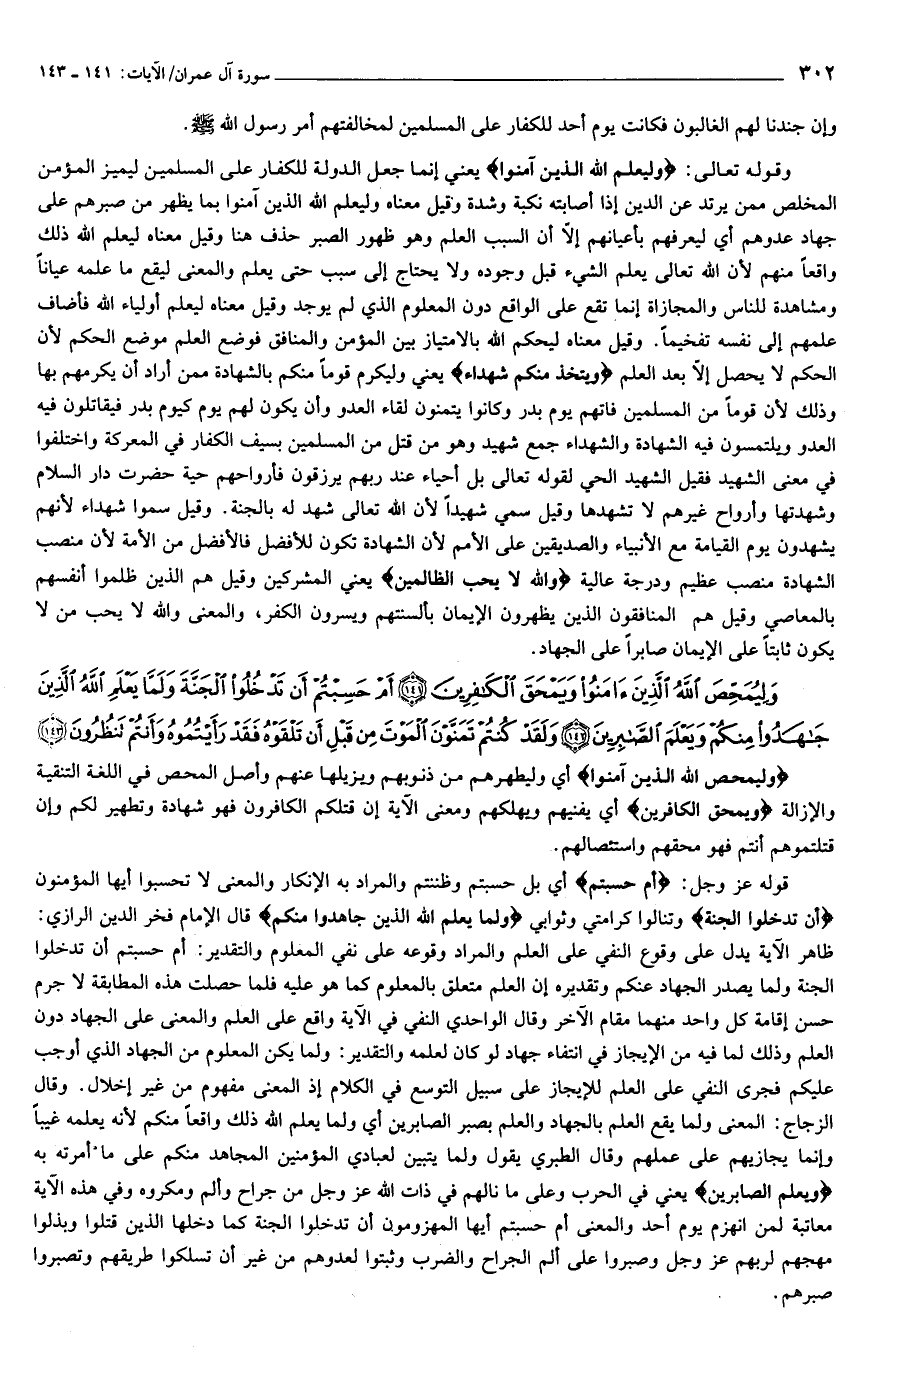 ٣٠٢ سورة آل عمران/ الآيات: ١٤١ ـ ١٤٣
وإن جندنا لهم الغالبون فكانت يوم أحد للكفار على المسلمين لمخالفتهم أمر رسول الله ﷺ.
وقوله تعالى: ﴿وليعلم الله الذين آمنوا﴾ يعني إنما جعل الدولة للكفار على المسلمين ليميز المؤمن
المخلص ممن يرتد عن الدين إذا أصابته نكبة وشدة وقيل معناه وليعلم الله الذين آمنوا بما يظهر من صبرهم على
جهاد عدوهم أي ليعرفهم بأعيانهم إلاّ أن السبب العلم وهو ظهور الصبر حذف هنا وقيل معناه ليعلم الله ذلك
واقعاً منهم لأن الله تعالى يعلم الشيء قبل وجوده ولا يحتاج إلى سبب حتى يعلم والمعنى ليقع ما علمه عياناً
ومشاهدة للناس والمجازاة إنما تقع على الواقع دون المعلوم الذي لم يوجد وقيل معناه ليعلم أولياء الله فأضاف
علمهم إلى نفسه تفخيماً. وقيل معناه ليحكم الله بالامتياز بين المؤمن والمنافق فوضع العلم موضع الحكم لأن
الحكم لا يحصل إلاّ بعد العلم ﴿ويتخذ منكم شهداء﴾ يعني وليكرم قوماً منكم بالشهادة ممن أراد أن يكرمهم بها
وذلك لأن قوماً من المسلمين فاتهم يوم بدر وكانوا يتمنون لقاء العدو وأن يكون لهم يوم كيوم بدر فيقاتلون فيه
العدو ويلتمسون فيه الشهادة والشهداء جمع شهيد وهو من قتل من المسلمين بسيف الكفار في المعركة واختلفوا
في معنى الشهيد فقيل الشهيد الحي لقوله تعالى بل أحياء عند ربهم يرزقون فأرواحهم حية حضرت دار السلام
وشهدتها وأرواح غيرهم لا تشهدها وقيل سمي شهيداً لأن الله تعالى شهد له بالجنة. وقيل سموا شهداء لأنهم
يشهدون يوم القيامة مع الأنبياء والصديقين على الأمم لأن الشهادة تكون للأفضل فالأفضل من الأمة لأن منصب
الشهادة منصب عظيم ودرجة عالية ﴿والله لا يحب الظالمين﴾ يعني المشركين وقيل هم الذين ظلموا أنفسهم
بالمعاصي وقيل هم المنافقون الذين يظهرون الإيمان بألسنتهم ويسرون الكفر، والمعنى والله لا يحب من لا
يكون ثابتاً على الإيمان صابراً على الجهاد.
وَلِيُمَحِّصَ ٱللَّهُ ٱلَّذِينَ ءَامَنُوا۟ وَيَمْحَقَ ٱلْكَٰفِرِينَ ﴿١٤١﴾ أَمْ حَسِبْتُمْ أَن تَدْخُلُوا۟ ٱلْجَنَّةَ وَلَمَّا يَعْلَمِ ٱللَّهُ ٱلَّذِينَ
جَٰهَدُوا۟ مِنكُمْ وَيَعْلَمَ ٱلصَّٰبِرِينَ ﴿١٤٢﴾ وَلَقَدْ كُنتُمْ تَمَنَّوْنَ ٱلْمَوْتَ مِن قَبْلِ أَن تَلْقَوْهُ فَقَدْ رَأَيْتُمُوهُ وَأَنتُمْ تَنظُرُونَ ﴿١٤٣﴾
﴿وليمحص الله الذين آمنوا﴾ أي وليطهرهم من ذنوبهم ويزيلها عنهم وأصل المحص في اللغة التنقية
والإزالة ﴿ويمحق الكافرين﴾ أي يفنيهم ويهلكهم ومعنى الآية إن قتلكم الكافرون فهو شهادة وتطهير لكم وإن
قتلتموهم أنتم فهو محقهم واستئصالهم.
قوله عز وجل: ﴿أم حسبتم﴾ أي بل حسبتم وظننتم والمراد به الإنكار والمعنى لا تحسبوا أيها المؤمنون
﴿أن تدخلوا الجنة﴾ وتنالوا كرامتي وثوابي ﴿ولما يعلم الله الذين جاهدوا منكم﴾ قال الإمام فخر الدين الرازي:
ظاهر الآية يدل على وقوع النفي على العلم والمراد وقوعه على نفي المعلوم والتقدير: أم حسبتم أن تدخلوا
الجنة ولما يصدر الجهاد عنكم وتقديره إن العلم متعلق بالمعلوم كما هو عليه فلما حصلت هذه المطابقة لا جرم
حسن إقامة كل واحد منهما مقام الآخر وقال الواحدي النفي في الآية واقع على العلم والمعنى على الجهاد دون
العلم وذلك لما فيه من الإيجاز في انتفاء جهاد لو كان لعلمه والتقدير: ولما يكن المعلوم من الجهاد الذي أوجب
عليكم فجرى النفي على العلم للإيجاز على سبيل التوسع في الكلام إذ المعنى مفهوم من غير إخلال. وقال
الزجاج: المعنى ولما يقع العلم بالجهاد والعلم بصبر الصابرين أي ولما يعلم الله ذلك واقعاً منكم لأنه يعلمه غيباً
وإنما يجازيهم على عملهم وقال الطبري يقول ولما يتبين لعبادي المؤمنين المجاهد منكم على ما أمرته به
﴿ويعلم الصابرين﴾ يعني في الحرب وعلى ما نالهم في ذات الله عز وجل من جراح وألم ومكروه وفي هذه الآية
معاتبة لمن انهزم يوم أحد والمعنى أم حسبتم أيها المهزومون أن تدخلوا الجنة كما دخلها الذين قتلوا وبذلوا
مهجهم لربهم عز وجل وصبروا على ألم الجراح والضرب وثبتوا لعدوهم من غير أن تسلكوا طريقهم وتصبروا
صبرهم.